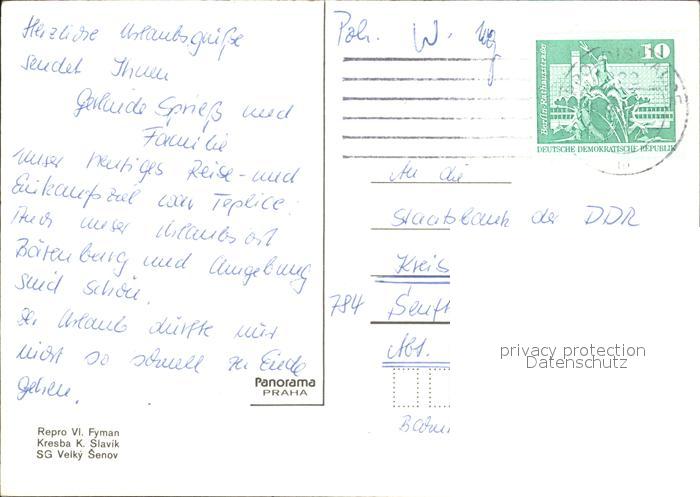 Herzliche Urlaubsgrüße
sendet Ihnen
Gerlinde Sprieß und
Familie
unser heutiges Reise- und
Einkaufsziel war Teplice.
Auch unser Urlaubsort
Bärenburg und Umgebung
sind schön.
Der Urlaub dürfte nur
nicht so schnell zu Ende
gehen.
Panorama
PRAHA
Repro Vl. Fyman
Kresba K. Slavík
SG Velký Šenov
W.
10
Berlin, Rathausstraße
DEUTSCHE DEMOKRATISCHE REPUBLIK
An die
Staatsbank der DDR
Kreis
784 Senft
Abt.
privacy protection
Datenschutz